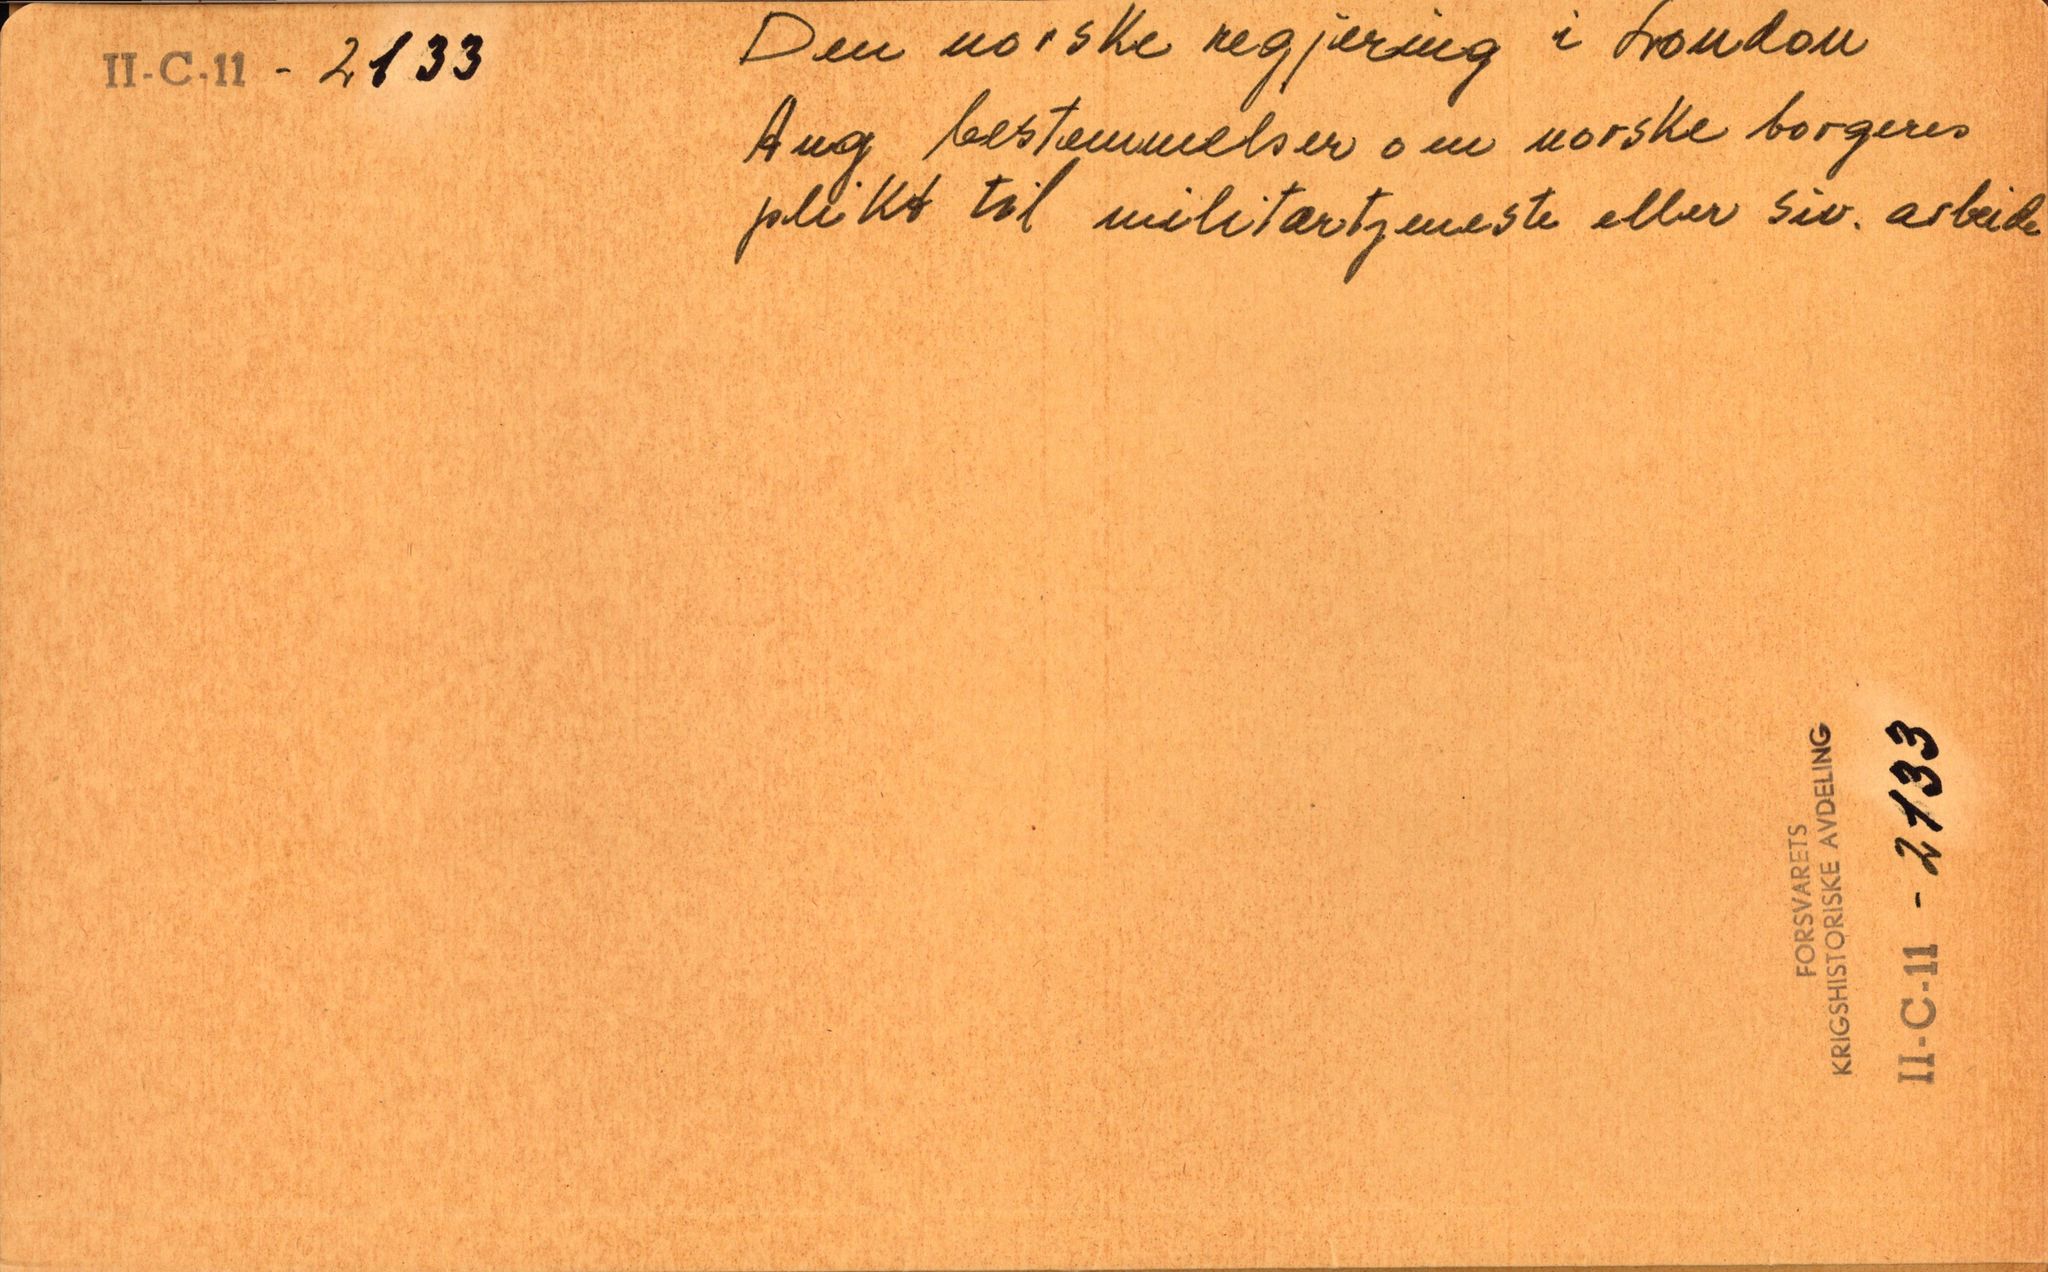 II-C-11 - 2133
Den norske regjering i London
Ang bestemmelser om norske borgeres
plikt til militærtjeneste eller siv. arbeide
FORSVARETS
KRIGSHISTORISKE AVDELING
II-C-11 - 2133